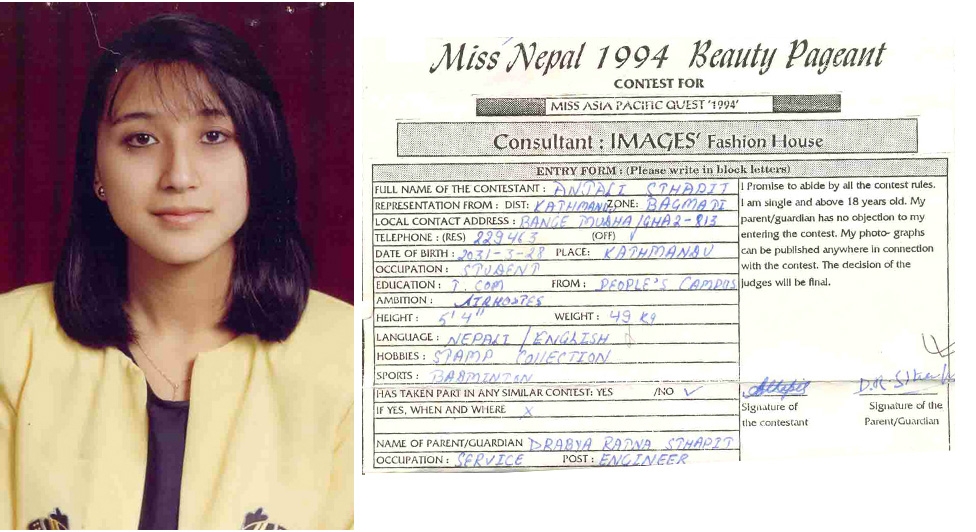 Miss Nepal 1994 Beauty Pageant
CONTEST FOR
MISS ASIA PACIFIC QUEST '1994'
Consultant : IMAGES' Fashion House
ENTRY FORM : (Please write in block letters)
FULL NAME OF THE CONTESTANT : ANJALI STHAPIT
REPRESENTATION FROM : DIST: KATHMANDU ZONE: BAGMATI
LOCAL CONTACT ADDRESS : /GHA2-813
TELEPHONE : (RES) 229463 (OFF)
DATE OF BIRTH : 2031-3-28 PLACE: KATHMANDU
OCCUPATION : STUDENT
EDUCATION : I. COM FROM : PEOPLE'S CAMPUS
AMBITION : AIRHOSTES
HEIGHT : 5' 4" WEIGHT : 49 Kg
LANGUAGE : NEPALI / ENGLISH
HOBBIES : STAMP COLLECTION
SPORTS : BADMINTON
HAS TAKEN PART IN ANY SIMILAR CONTEST: YES /NO ✓
IF YES, WHEN AND WHERE X
NAME OF PARENT/GUARDIAN DRABYA RATNA STHAPIT
OCCUPATION : SERVICE POST : ENGINEER
I Promise to abide by all the contest rules.
I am single and above 18 years old. My
parent/guardian has no objection to my
entering the contest. My photo- graphs
can be published anywhere in connection
with the contest. The decision of the
judges will be final.
Signature of
the contestant
Signature of the
Parent/Guardian